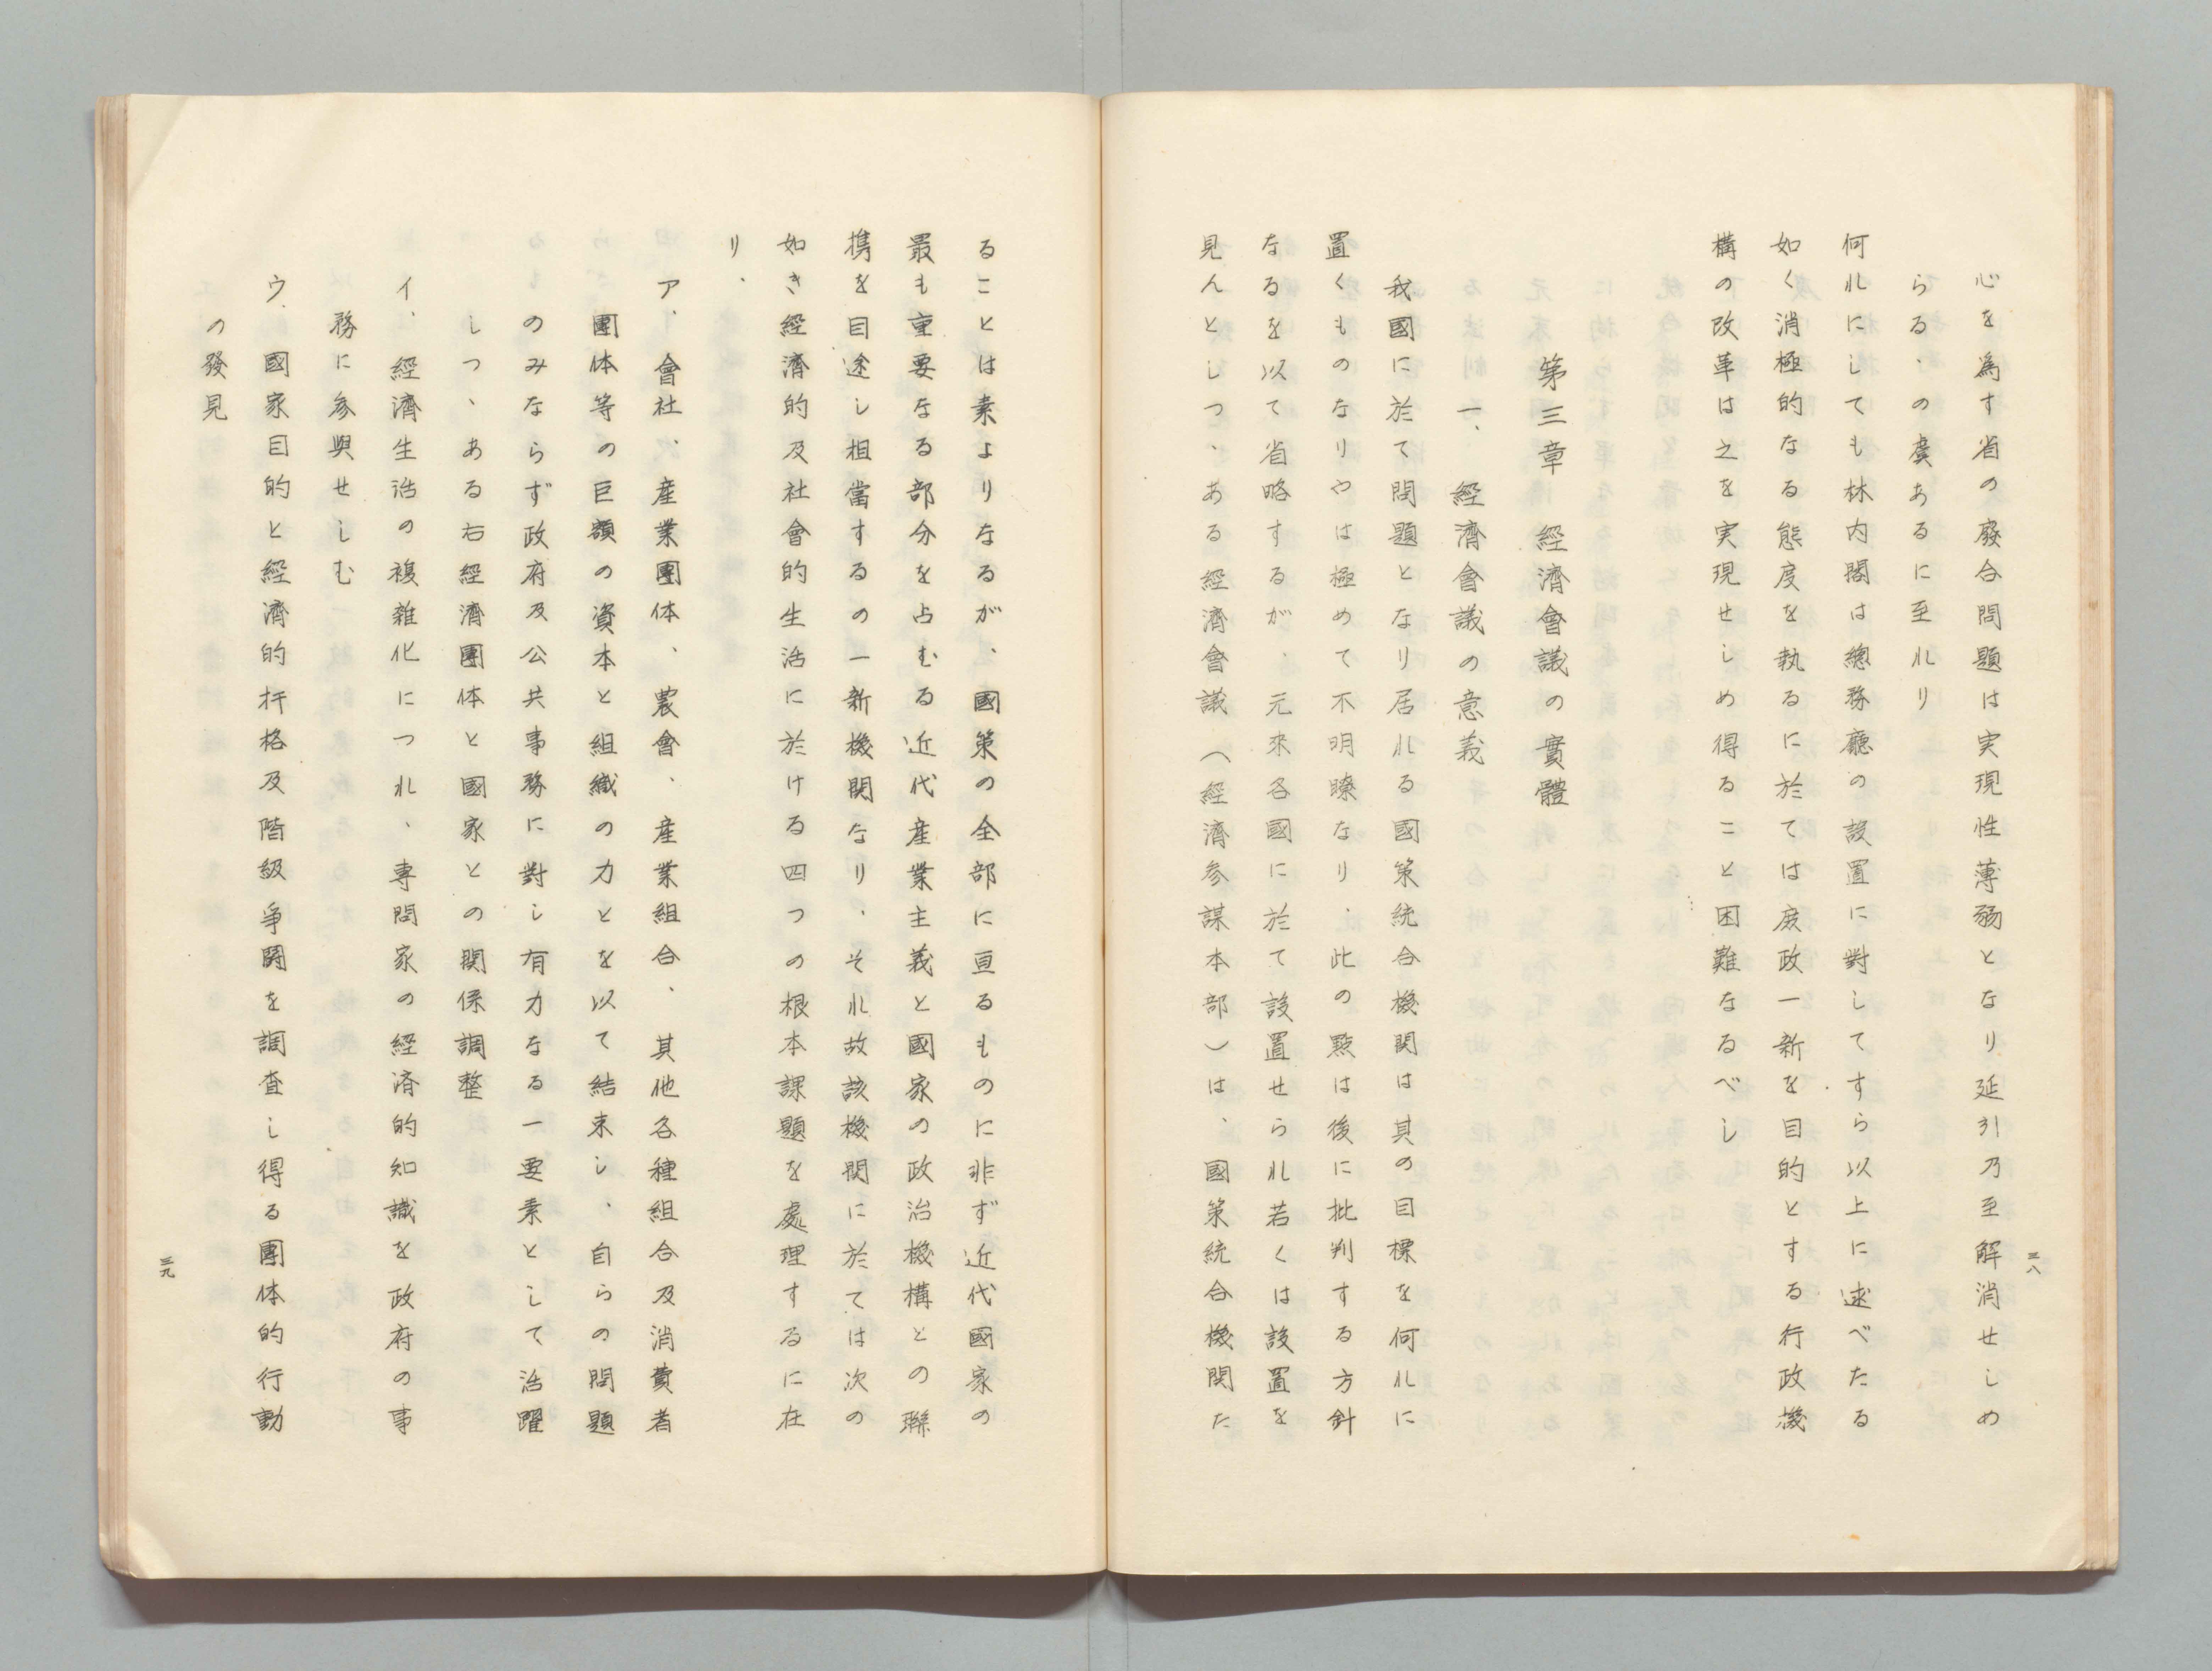 心を為す省の廢合問題は実現性薄弱となり延引乃至解消せしめ
らるゝの虞あるに至れり
何れにしても林内閣は總務廳の設置に對してすら以上に述べたる
如く消極的なる態度を執るに於ては庶政一新を目的とする行政機
構の改革は之を実現せしめ得ること困難なるべし
第三章 經濟會議の實體
一、經濟會議の意義
我國に於て問題となり居れる國策統合機関は其の目標を何れに
置くものなりやは極めて不明瞭なり、此の點は後に批判する方針
なるを以て省略するが、元來各國に於て設置せられ若くは設置を
見んとしつゝある經濟會議（經濟参謀本部）は、國策統合機関た
三八
ることは素よりなるが、國策の全部に亘るものに非ず近代國家の
最も重要なる部分を占むる近代産業主義と國家の政治機構との聯
携を目途し相當するの一新機関なり、それ故該機関に於ては次の
如き經濟的及社會的生活に於ける四つの根本課題を處理するに在
り、
ア、會社、産業團体、農會、産業組合、其他各種組合及消費者
團体等の巨額の資本と組織の力とを以て結束し、自らの問題
のみならず政府及公共事務に對し有力なる一要素として活躍
しつゝある右經濟團体と國家との関係調整
イ、經濟生活の複雜化につれ、専問家の經済的知識を政府の事
務に参與せしむ
ウ、國家目的と經済的扞格及階級爭鬪を調査し得る團体的行動
の發見
三九